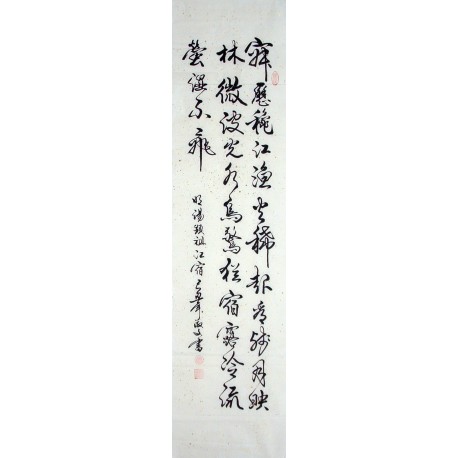 寂歷穐江渔火稀起看残月映
林微波光水鳥驚猶宿露冷流
螢湿不飛
明湯顯祖江宿 書